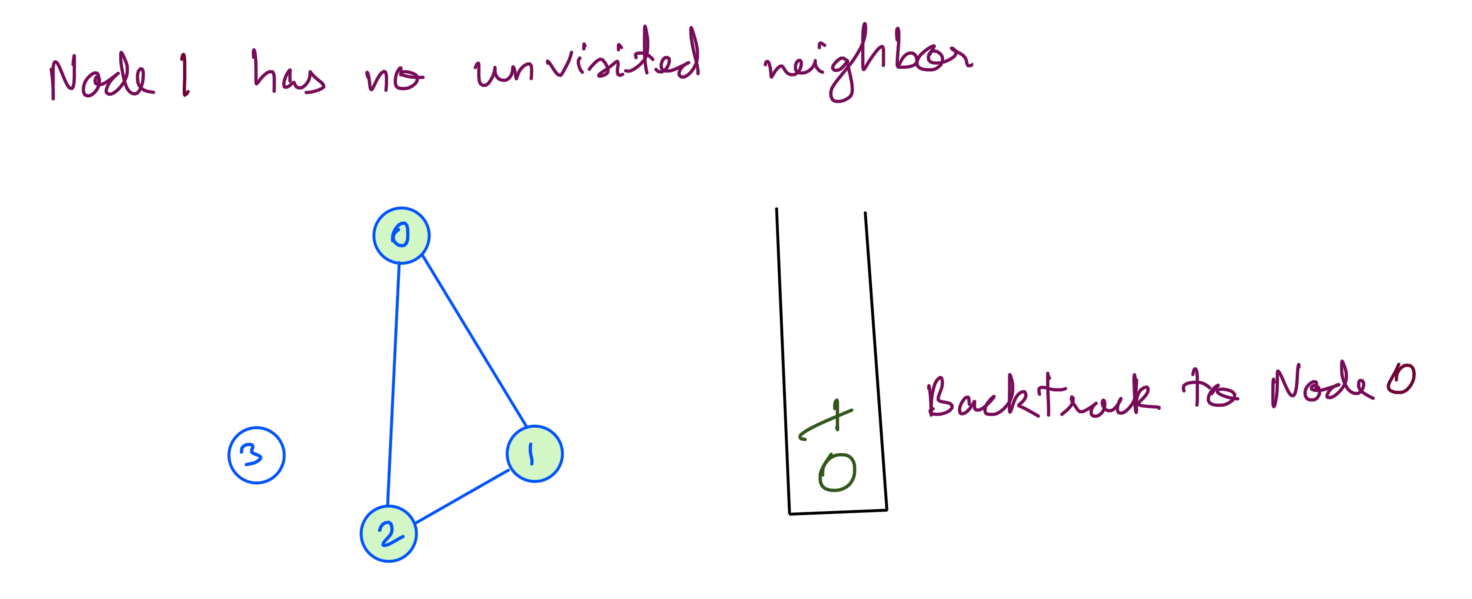 Node 1 has no unvisited neighbor
0
3
1
2
1
0
Backtrack to Node 0